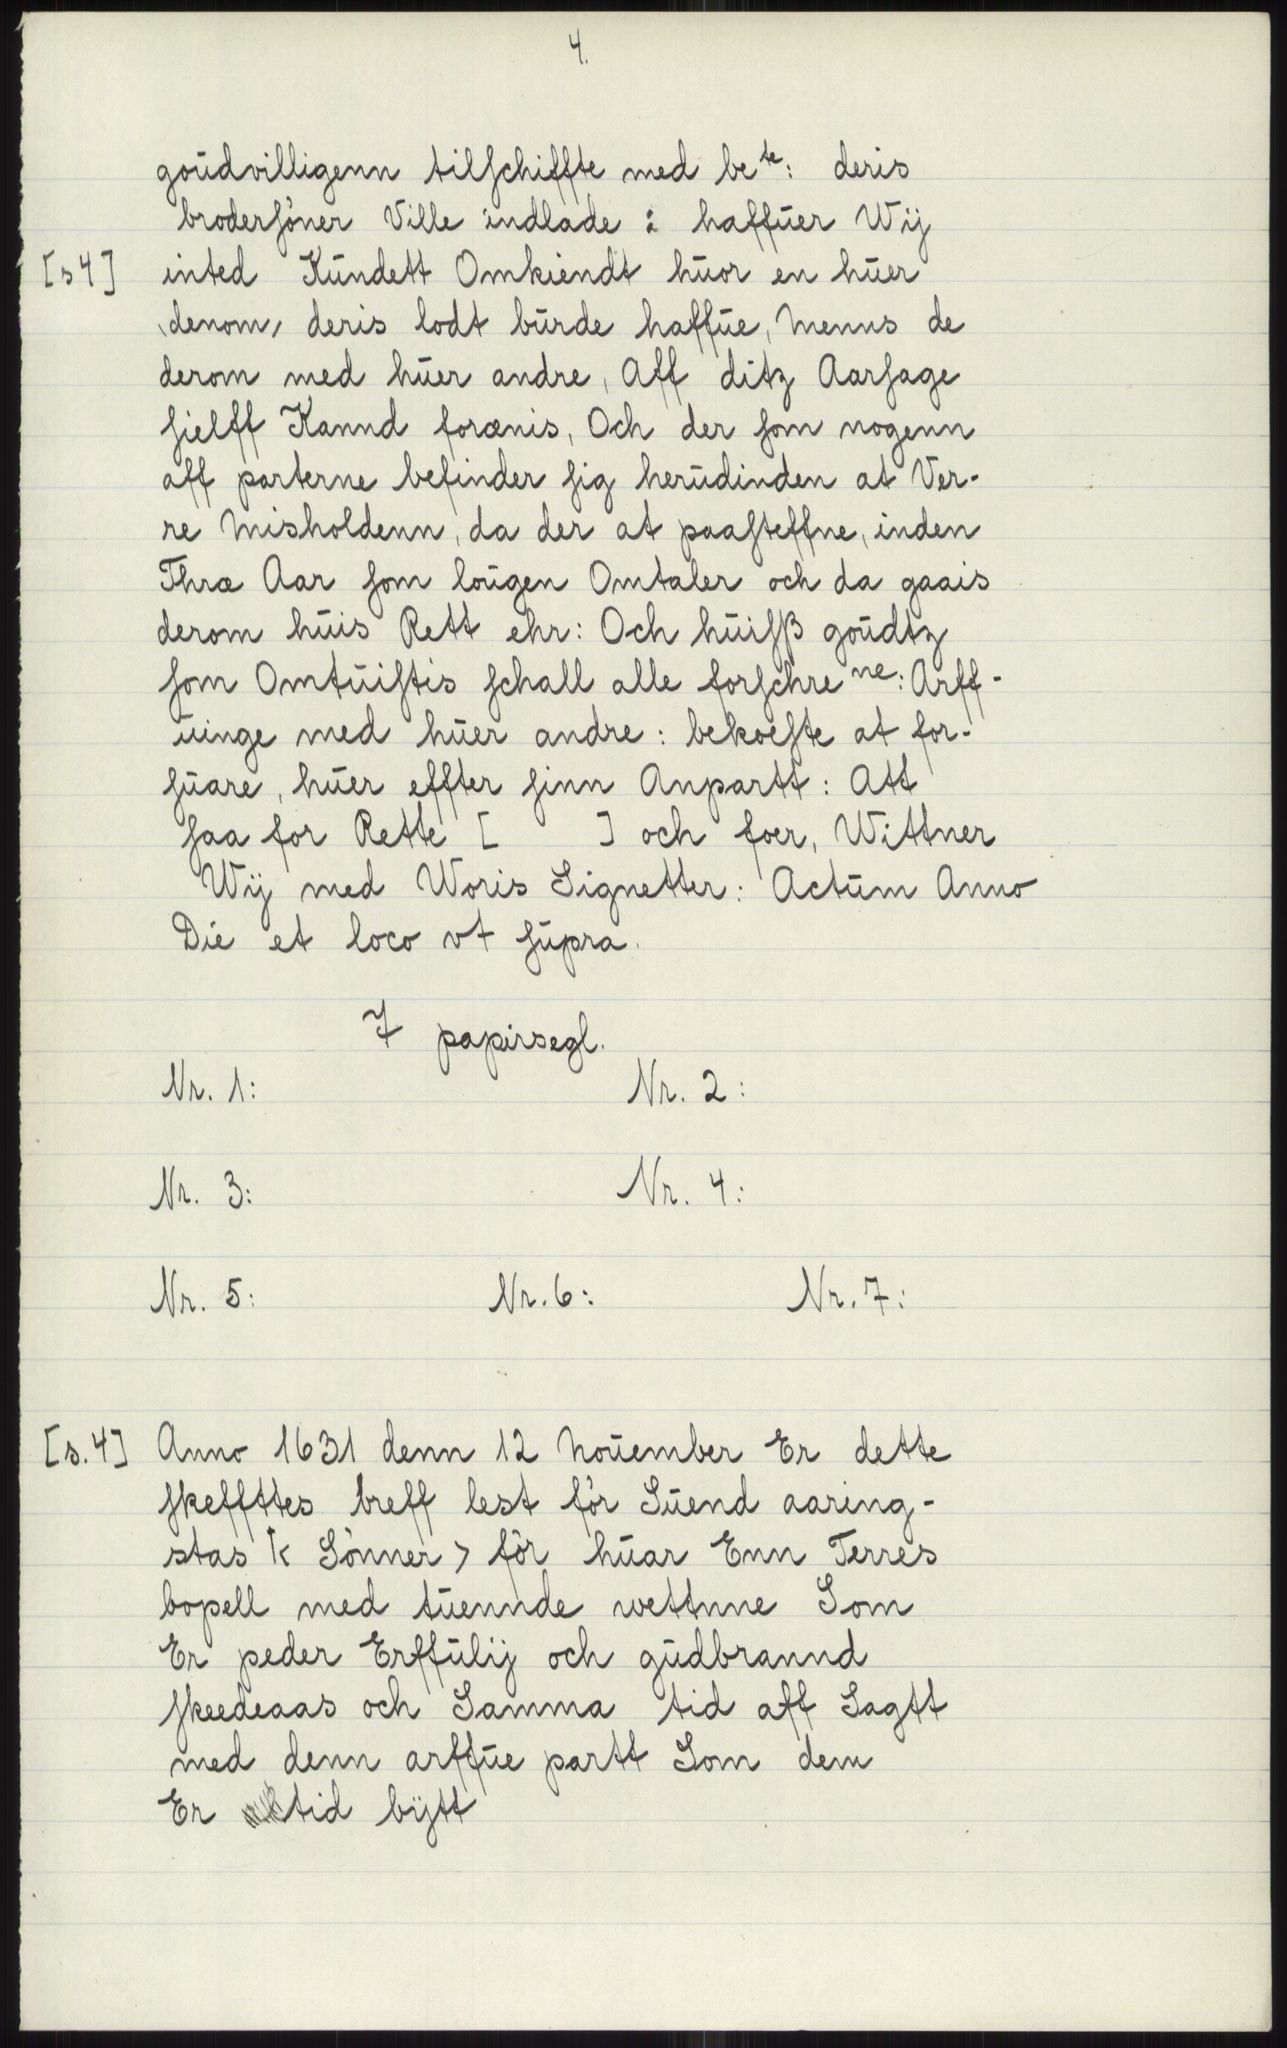 4.
goudvilligenn tilschiffte med be te: deris
brodersöner Ville indlade : haffuer Wij
[s 4] inted Kundett Omkiendt huor en huer
denom, deris lodt burde haffue, Menns de
derom med huer andre, Aff ditz Aarsage
sielff Kannd forænis, Och der som nogenn
aff parterne befinder sig herudinden at Ver-
re Misholdenn, da der at paasteffne, inden
Thræ Aar som lougen Omtaler och da gaais
derom huis Rett ehr: Och huisß goudtz
som Omtuistis schall alle forschre ne: Arff-
uinge med huer andre: bekoeste at for-
suare, huer effter sinn Anpartt: Att
saa for Rette [ ] och foer, Wittner
Wij med Woris Signetter: Actum Anno
Die et loco vt supra.
7 papirsegl.
Nr. 1: Nr. 2:
Nr. 3: Nr. 4:
Nr. 5: Nr. 6: Nr. 7:
[s. 4] Anno 1631 denn 12 Nouember Er dette
skeffttes breff lest för Suend aaring-
stas k Sönner > för huar Enn Terres
bopell med tuennde wettnne Som
Er peder Erffulij och gudbrannd
skeedeaas och Samma tid aff Sagtt
med denn arffue partt Som dem
Er tid bijtt